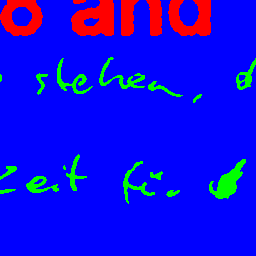 8 and
stehen,
Zeit für